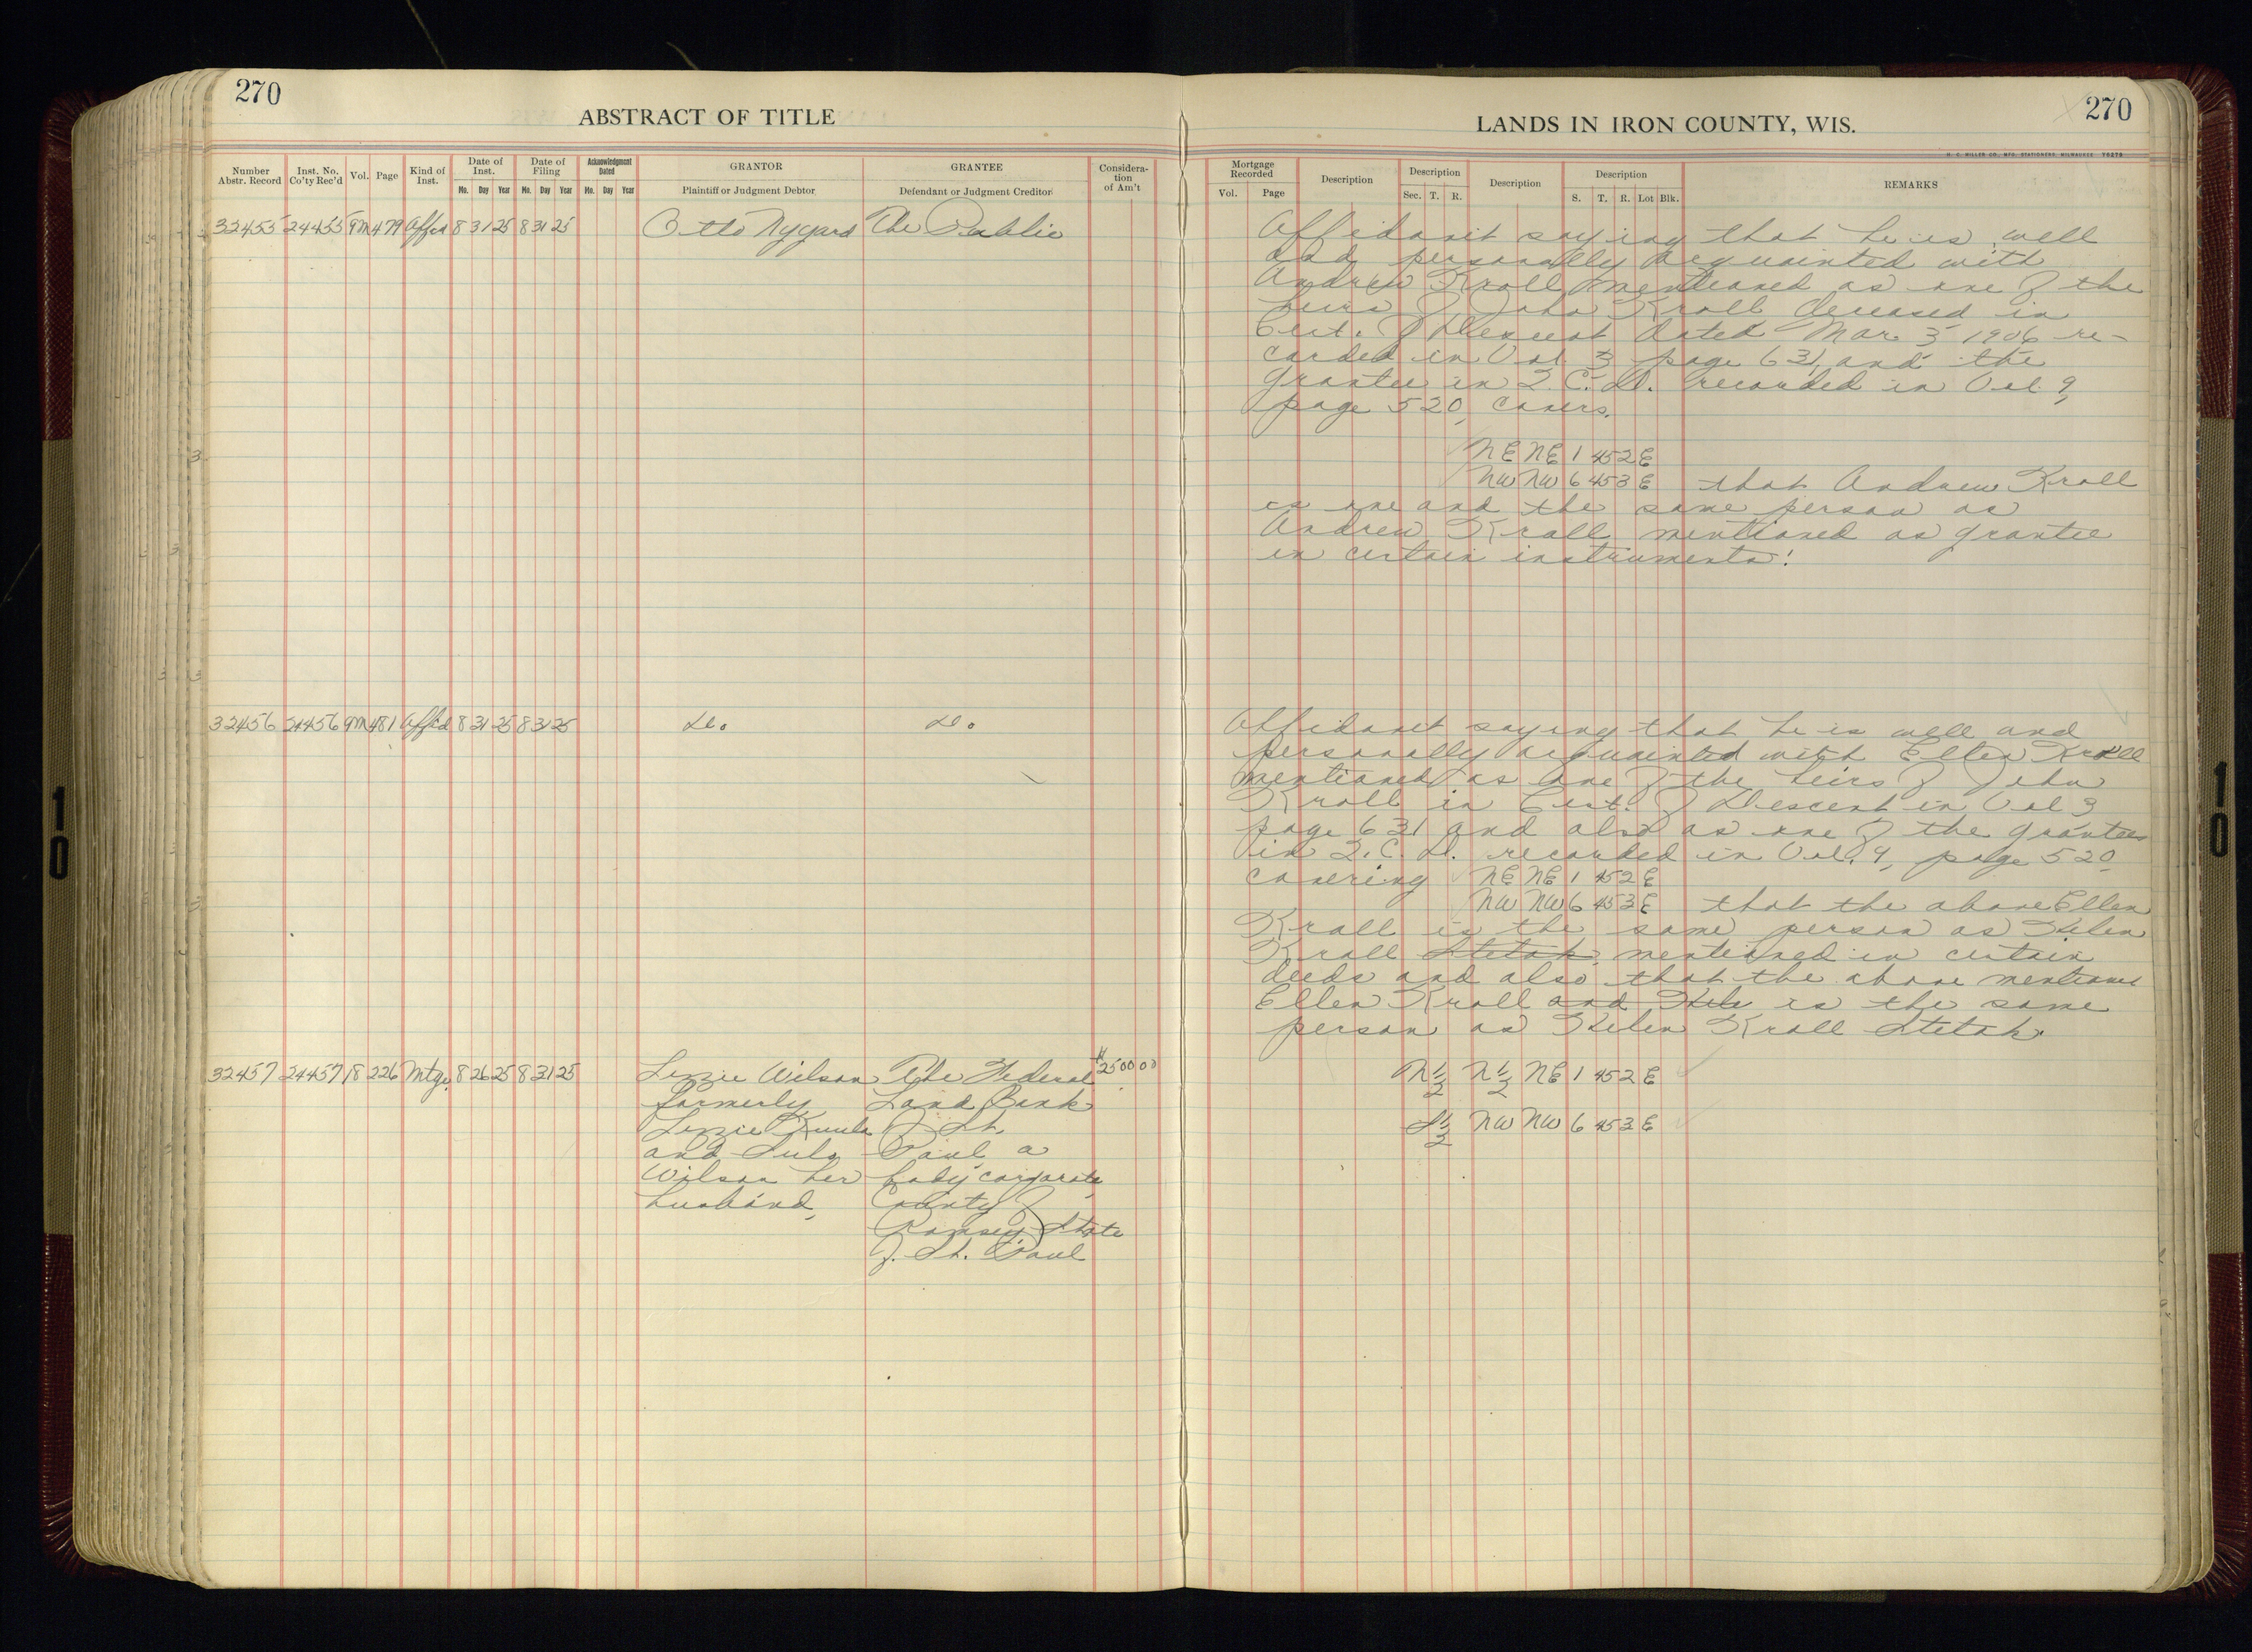 270
ABSTRACT OF TITLE
Number Abstr. Record
Inst. No. Co'ty Rec'd
Vol.
Page
Kind of Inst.
Date of Inst.
Mo. Day Year
Date of Filing
Mo. Day Year
Acknowledgment Dated
Mo. Day Year
GRANTOR
Plaintiff or Judgment Debtor
GRANTEE
Defendant or Judgment Creditor
Considera-
tion
of Am't
32455 24455 9m 479 Affid 8 31 25 8 31 25 Otto Nygard The Public
32456 24456 9m 481 Affid 8 31 25 8 31 25 Do. Do.
32457 24457 18 226 Mtge. 8 26 25 8 31 25 Lizzie Wilson The Federal $2500 00
formerly Land Bank
Lizzie of St.
and Wilson her Paul, a
husband, body corporate
County of
Ramsey State
of St. Paul
270
LANDS IN IRON COUNTY, WIS.
H. C. MILLER CO., MFG. STATIONERS, MILWAUKEE
Mortgage Recorded
Vol. Page
Description
Description
Sec. T. R.
Description
Description
S. T. R. Lot Blk.
REMARKS
Affidavit saying that he is well
and personally acquainted with
Andrew Kroll mentioned as one of the
heirs of John Kroll deceased in
Cert. of Descent dated Mar. 3 1906 re-
corded in Vol 3 page 631, and the
grantee in Q. C. D. recorded in Vol. 9,
page 520, covers.
NE NE 1 45 2 E
NW NW 6 45 3 E that Andrew Kroll
is one and the same person as
Andrew Krall mentioned as grantee
in certain instruments!
Affidavit saying that he is well and
personally acquainted with Ellen Kroll
mentioned as one of the heirs of John
Kroll in Cert. of Descent in Vol 3
page 631 and also as one of the grantees
in Q. C. D. recorded in Vol. 9, page 520
covering NE NE 1 45 2 E
NW NW 6 45 3 E that the above Ellen
Krall is the same person as Helen
Krall Stetak, mentioned in certain
deeds and also that the above mentioned
Ellen Kroll and Hele is the same
person as Helen Kroll Stetak.
N 1/2 N 1/2 NE 1 45 2 E
S 1/2 NW NW 6 45 3 E
10
10